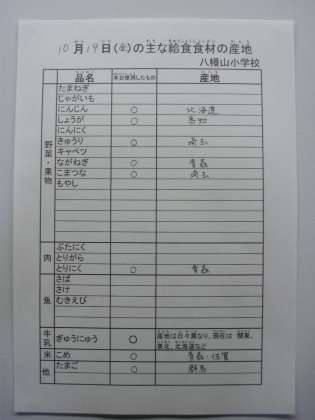 10月19日(金)の主な給食食材の産地
八幡山小学校
品名 本日使用したもの 産地
野菜・果物
たまねぎ
じゃがいも
にんじん ○ 北海道
しょうが ○ 高知
にんにく
きゅうり ○
キャベツ
ながねぎ ○ 青森
こまつな ○
もやし
肉
ぶたにく
とりがら
とりにく ○ 青森
魚
さば
さけ
むきえび
牛乳 ぎゅうにゅう ○ 産地は日々異なり、現在は 関東、東北、北海道など
米 こめ ○ 青森・佐賀
他 たまご ○ 群馬